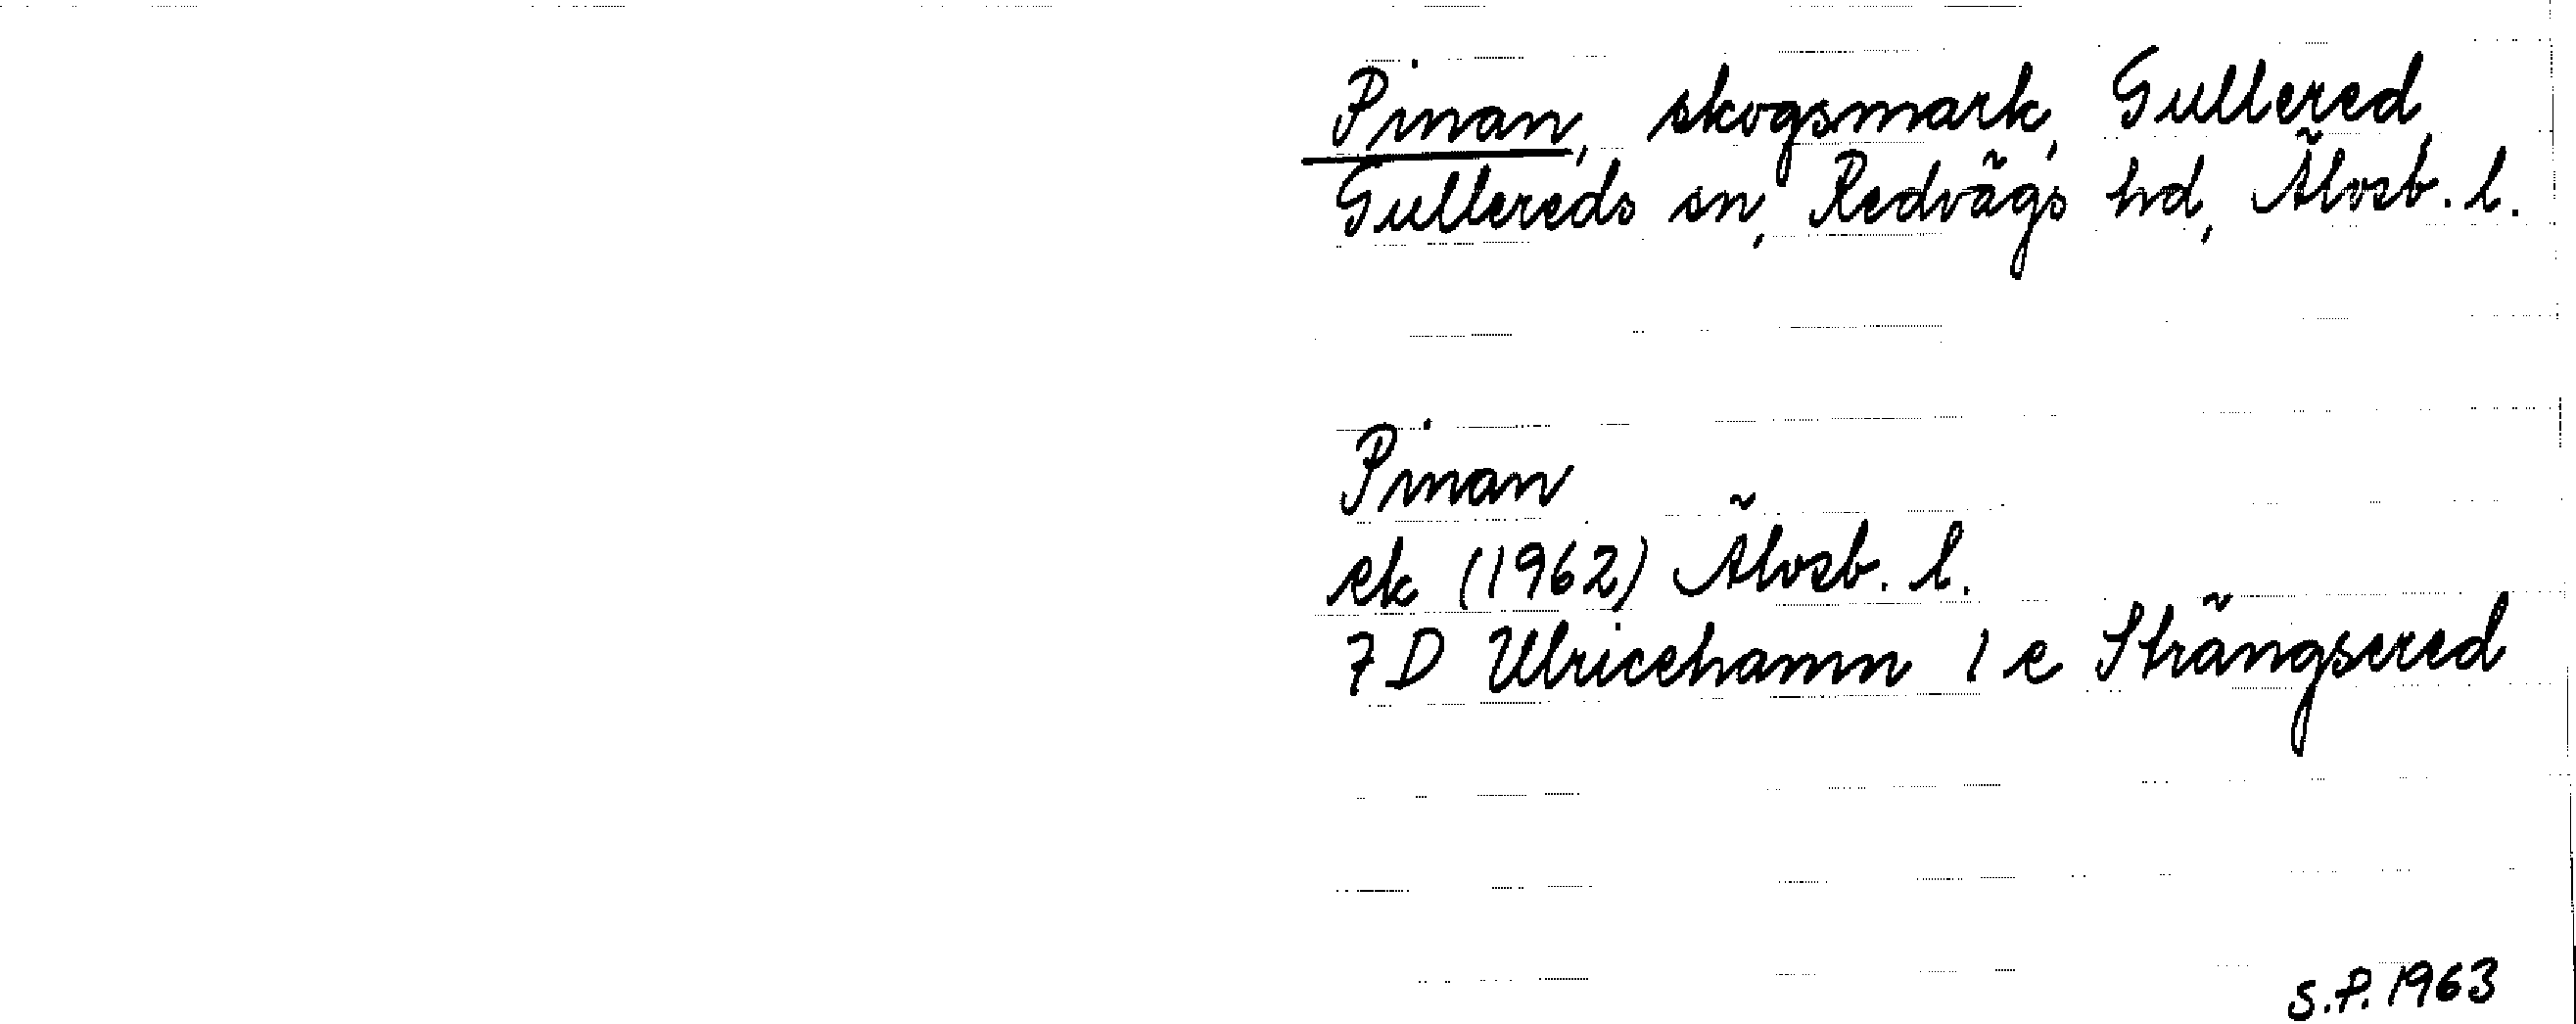 Pinan, skogsmark, Gullered,
Gullereds sn, Redvägs hd, Älvsb. l.
Pinan
ek (1962) Älvsb. l.
7D Ulricehamn 1 e Strängsered
S.P. 1963